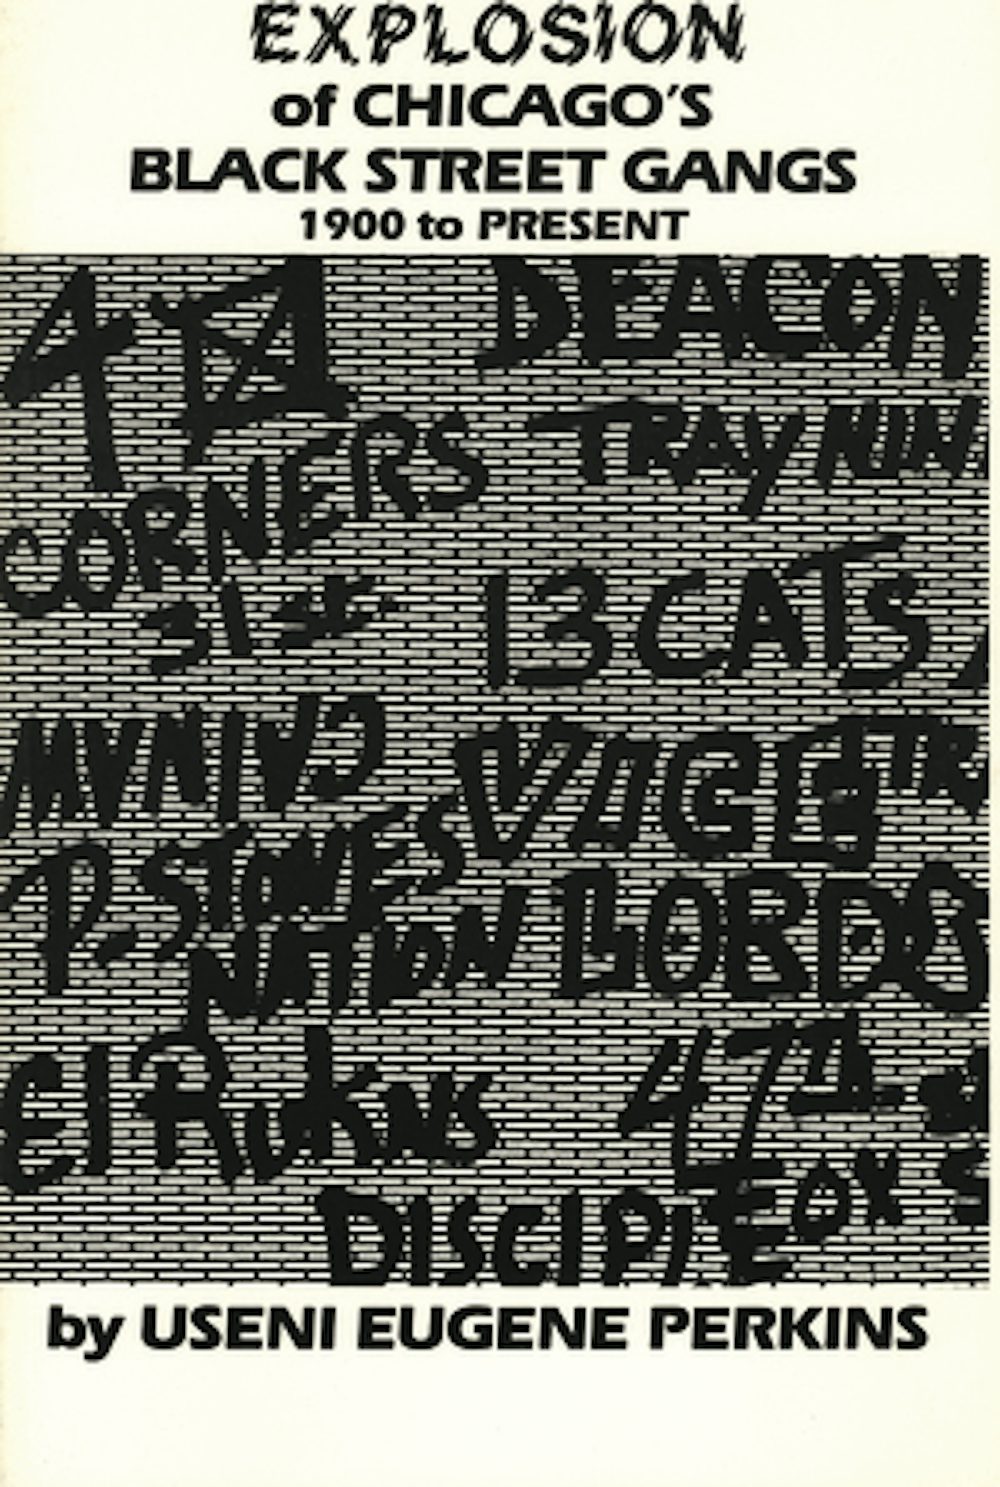 EXPLOSION
of CHICAGO'S
BLACK STREET GANGS
1900 to PRESENT
DEACON
CORNERS
TRAY NIN
31st
13 CATS
P-STONES
NATION
El Rukns
47th
DISCIPLE
by USENI EUGENE PERKINS